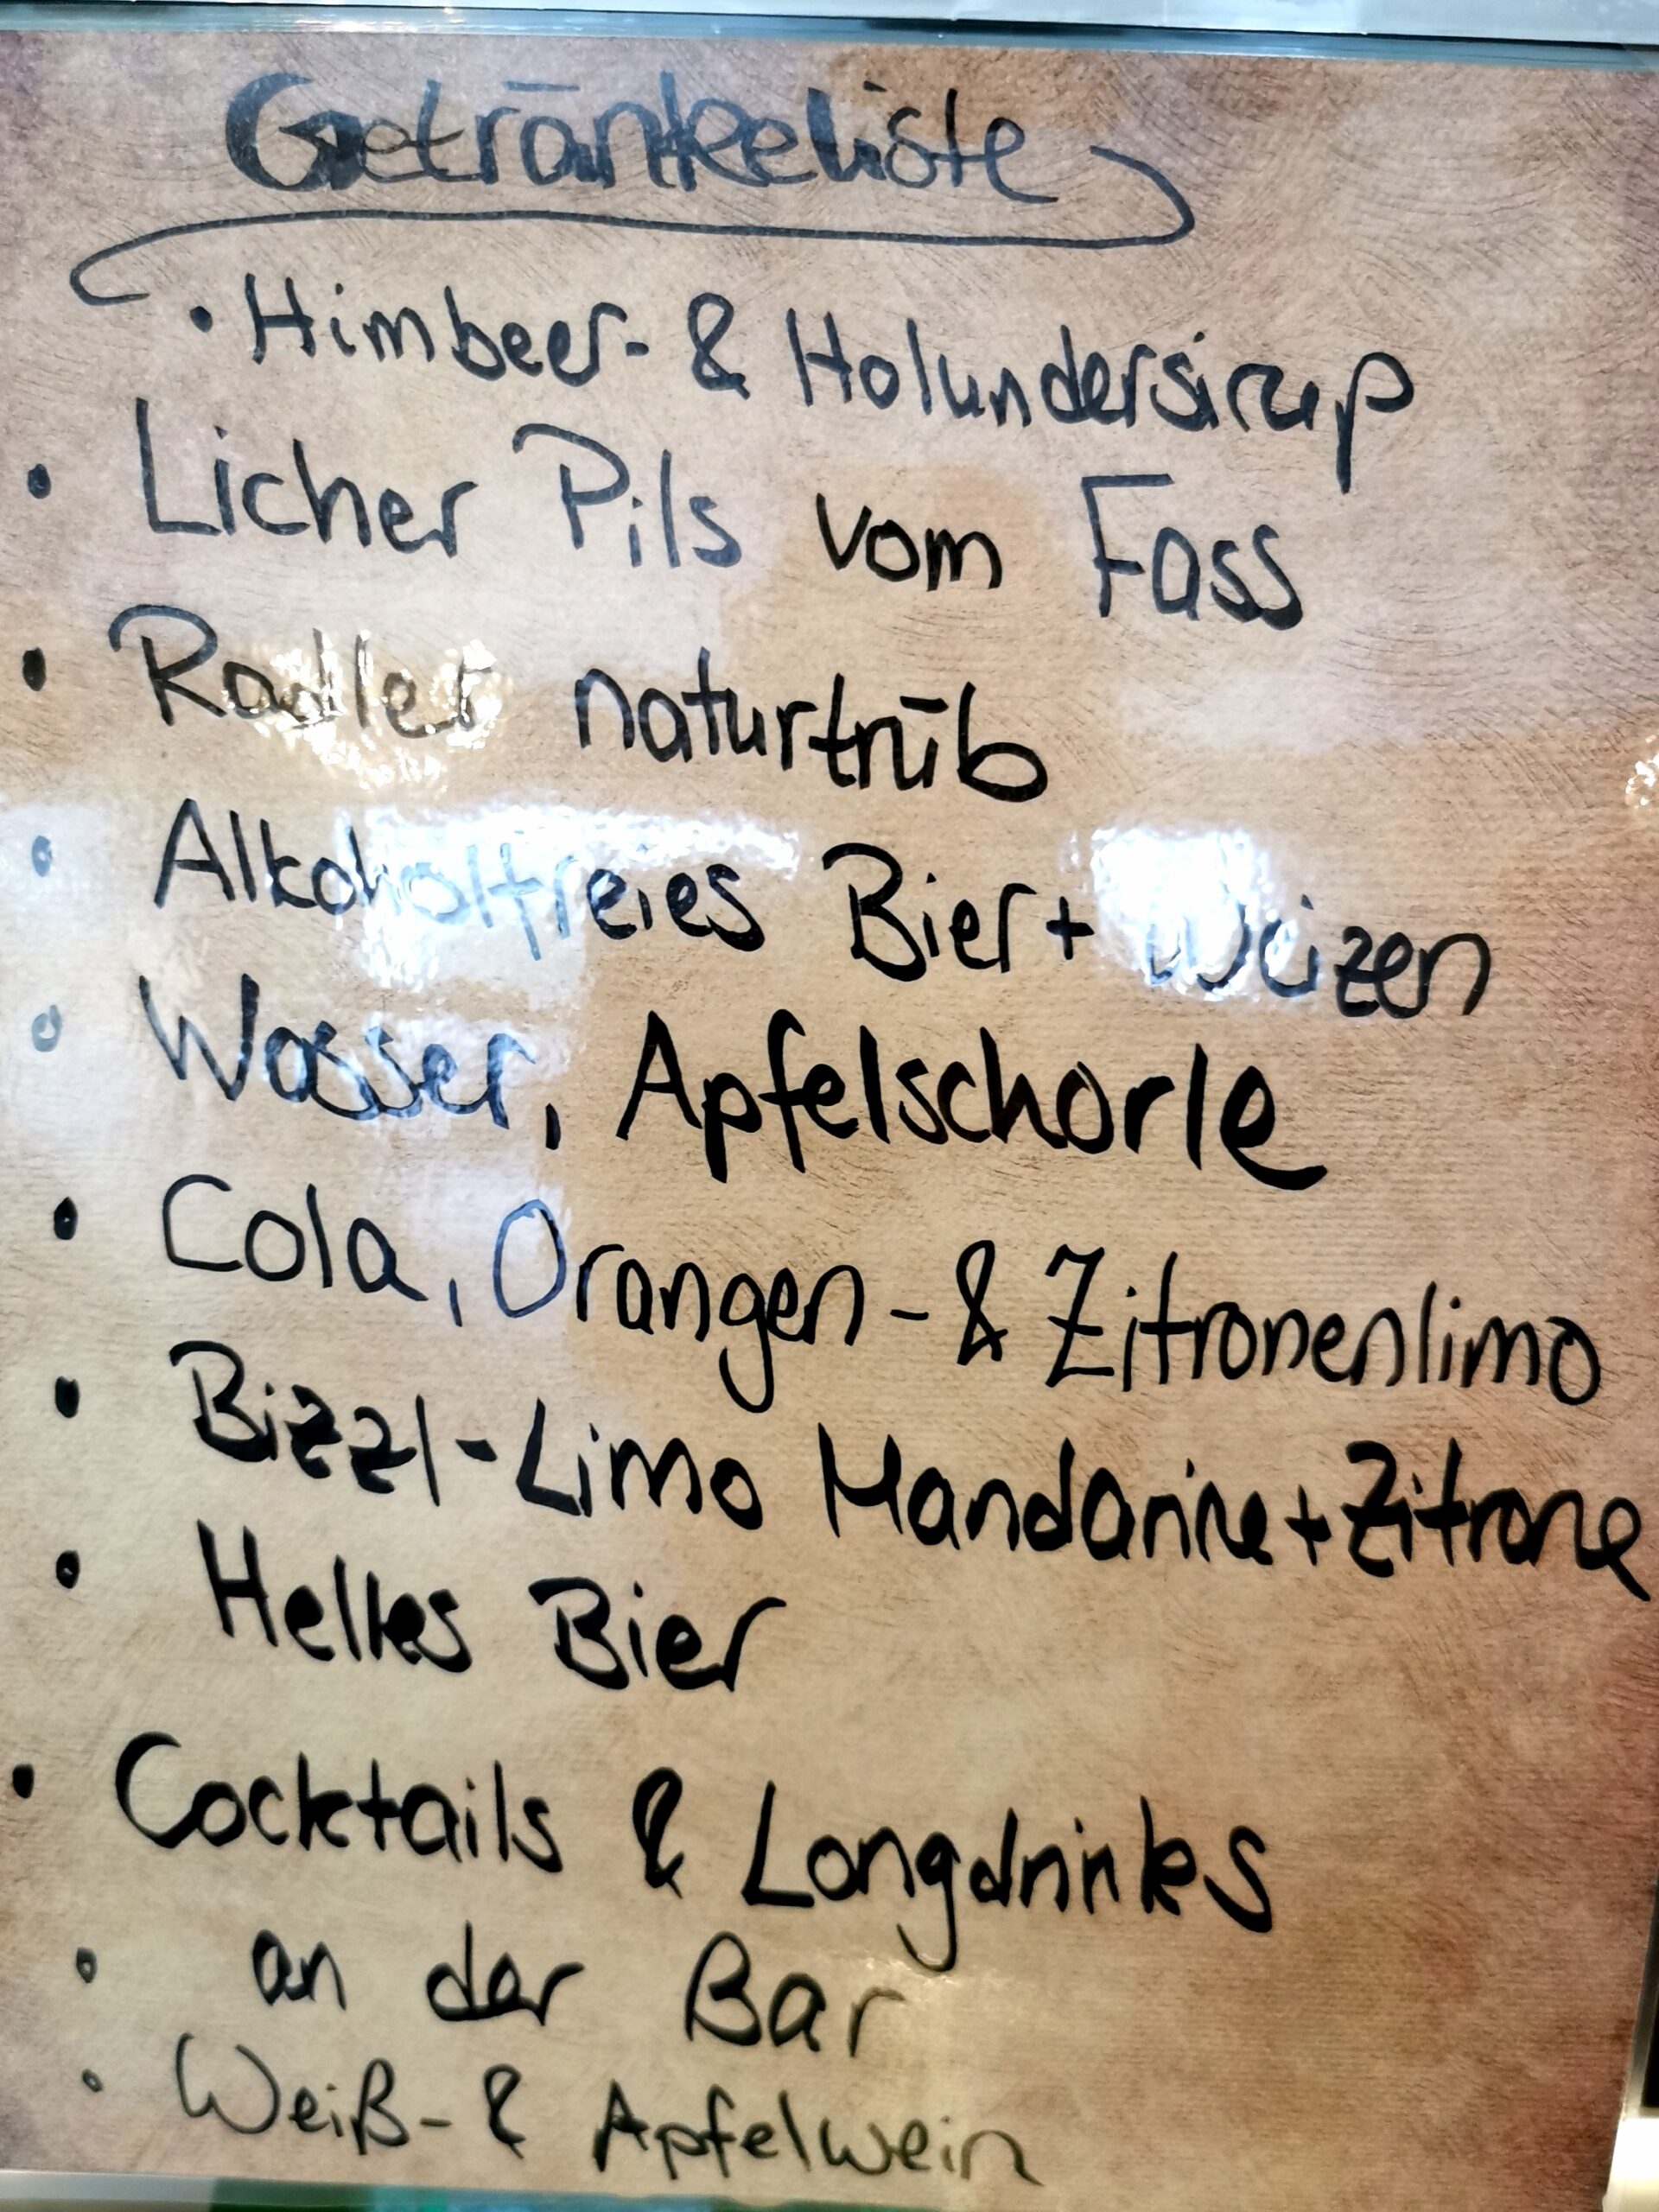 Getränkeliste
• Himbeer- & Holundersirup
• Licher Pils vom Fass
• Radler naturtrüb
• Alkoholfreies Bier + Weizen
• Wasser, Apfelschorle
• Cola, Orangen- & Zitronenlimo
• Bizzl-Limo Mandarine + Zitrone
• Helles Bier
• Cocktails & Longdrinks
• an der Bar
• Weiß- & Apfelwein